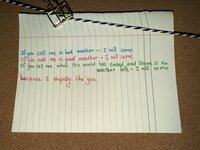 If you call me in bad weather - I will come.
If you call me in good weather - I will come.
If you call me when the world has ended and there is no
weather left - I will come
because I stupidly like you.